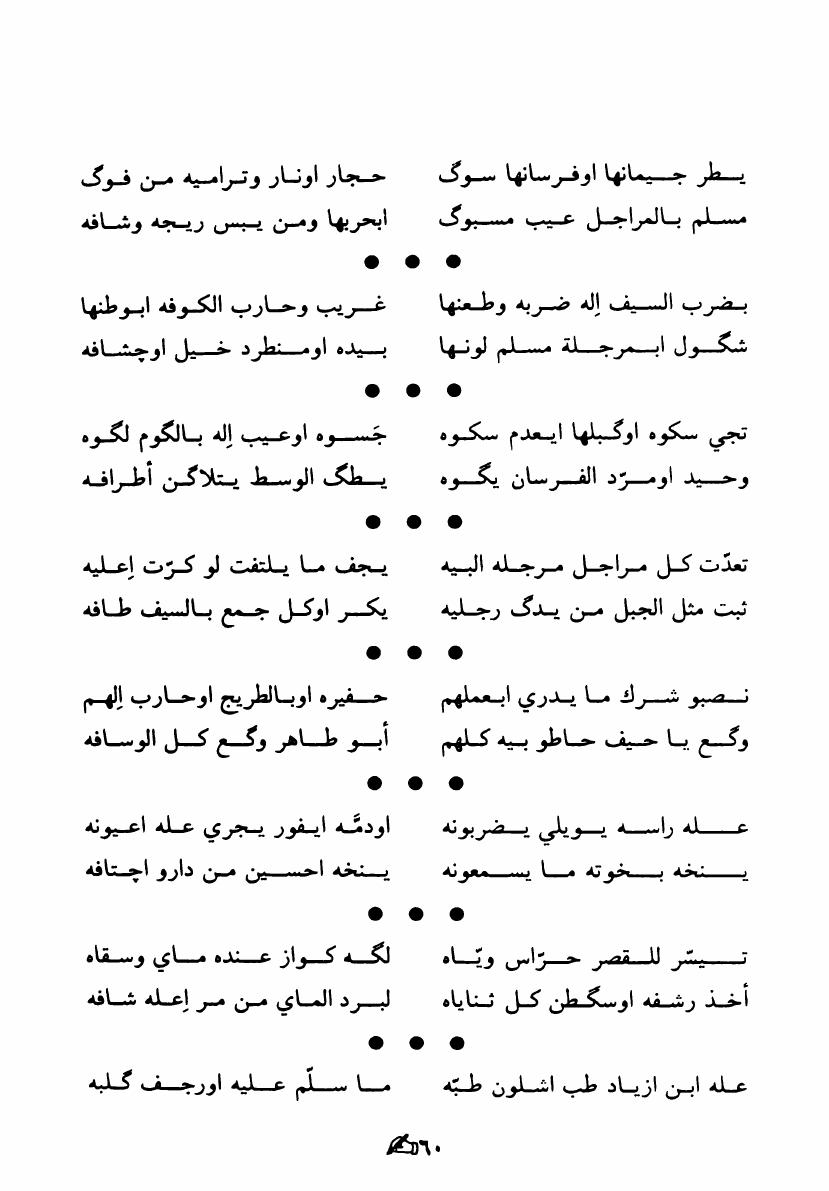 يطر جيمانها اوفرسانها سوگ حجار اونار وتراميه من فوگ
مسلم بالمراجل عيب مسبوگ ابحربها ومن يبس ريجه وشافه
● ● ●
بضرب السيف إله ضربه وطعنها غريب وحارب الكوفه ابوطنها
شگول ابمرجلة مسلم لونها بيده اومنطرد خيل اوچشافه
● ● ●
تجي سكوه اوگبلها ايعدم سكوه جَسوه اوعيب إله بالگوم لگوه
وحيد اومرّد الفرسان يگوه يطگ الوسط يتلاگن أطرافه
● ● ●
تعدّت كل مراجل مرجله البيه يجف ما يلتفت لو كرّت إعليه
ثبت مثل الجبل من يدگ رجليه يكر اوكل جمع بالسيف طافه
● ● ●
نصبو شرك ما يدري ابعملهم حفيره اوبالطريج اوحارب إلهم
وگع يا حيف حاطو بيه كلهم أبو طاهر وگع كل الوسافه
● ● ●
عله راسه يويلي يضربونه اودمَّه ايفور يجري عله اعيونه
ينخه بخوته ما يسمعونه ينخه احسين من دارو اچتافه
● ● ●
تيسّر للقصر حرّاس ويّاه لگه كواز عنده ماي وسقاه
أخذ رشفه اوسگطن كل ثناياه لبرد الماي من مر إعله شافه
● ● ●
عله ابن ازياد طب اشلون طبّه ما سلّم عليه اورجف گلبه
٦٠